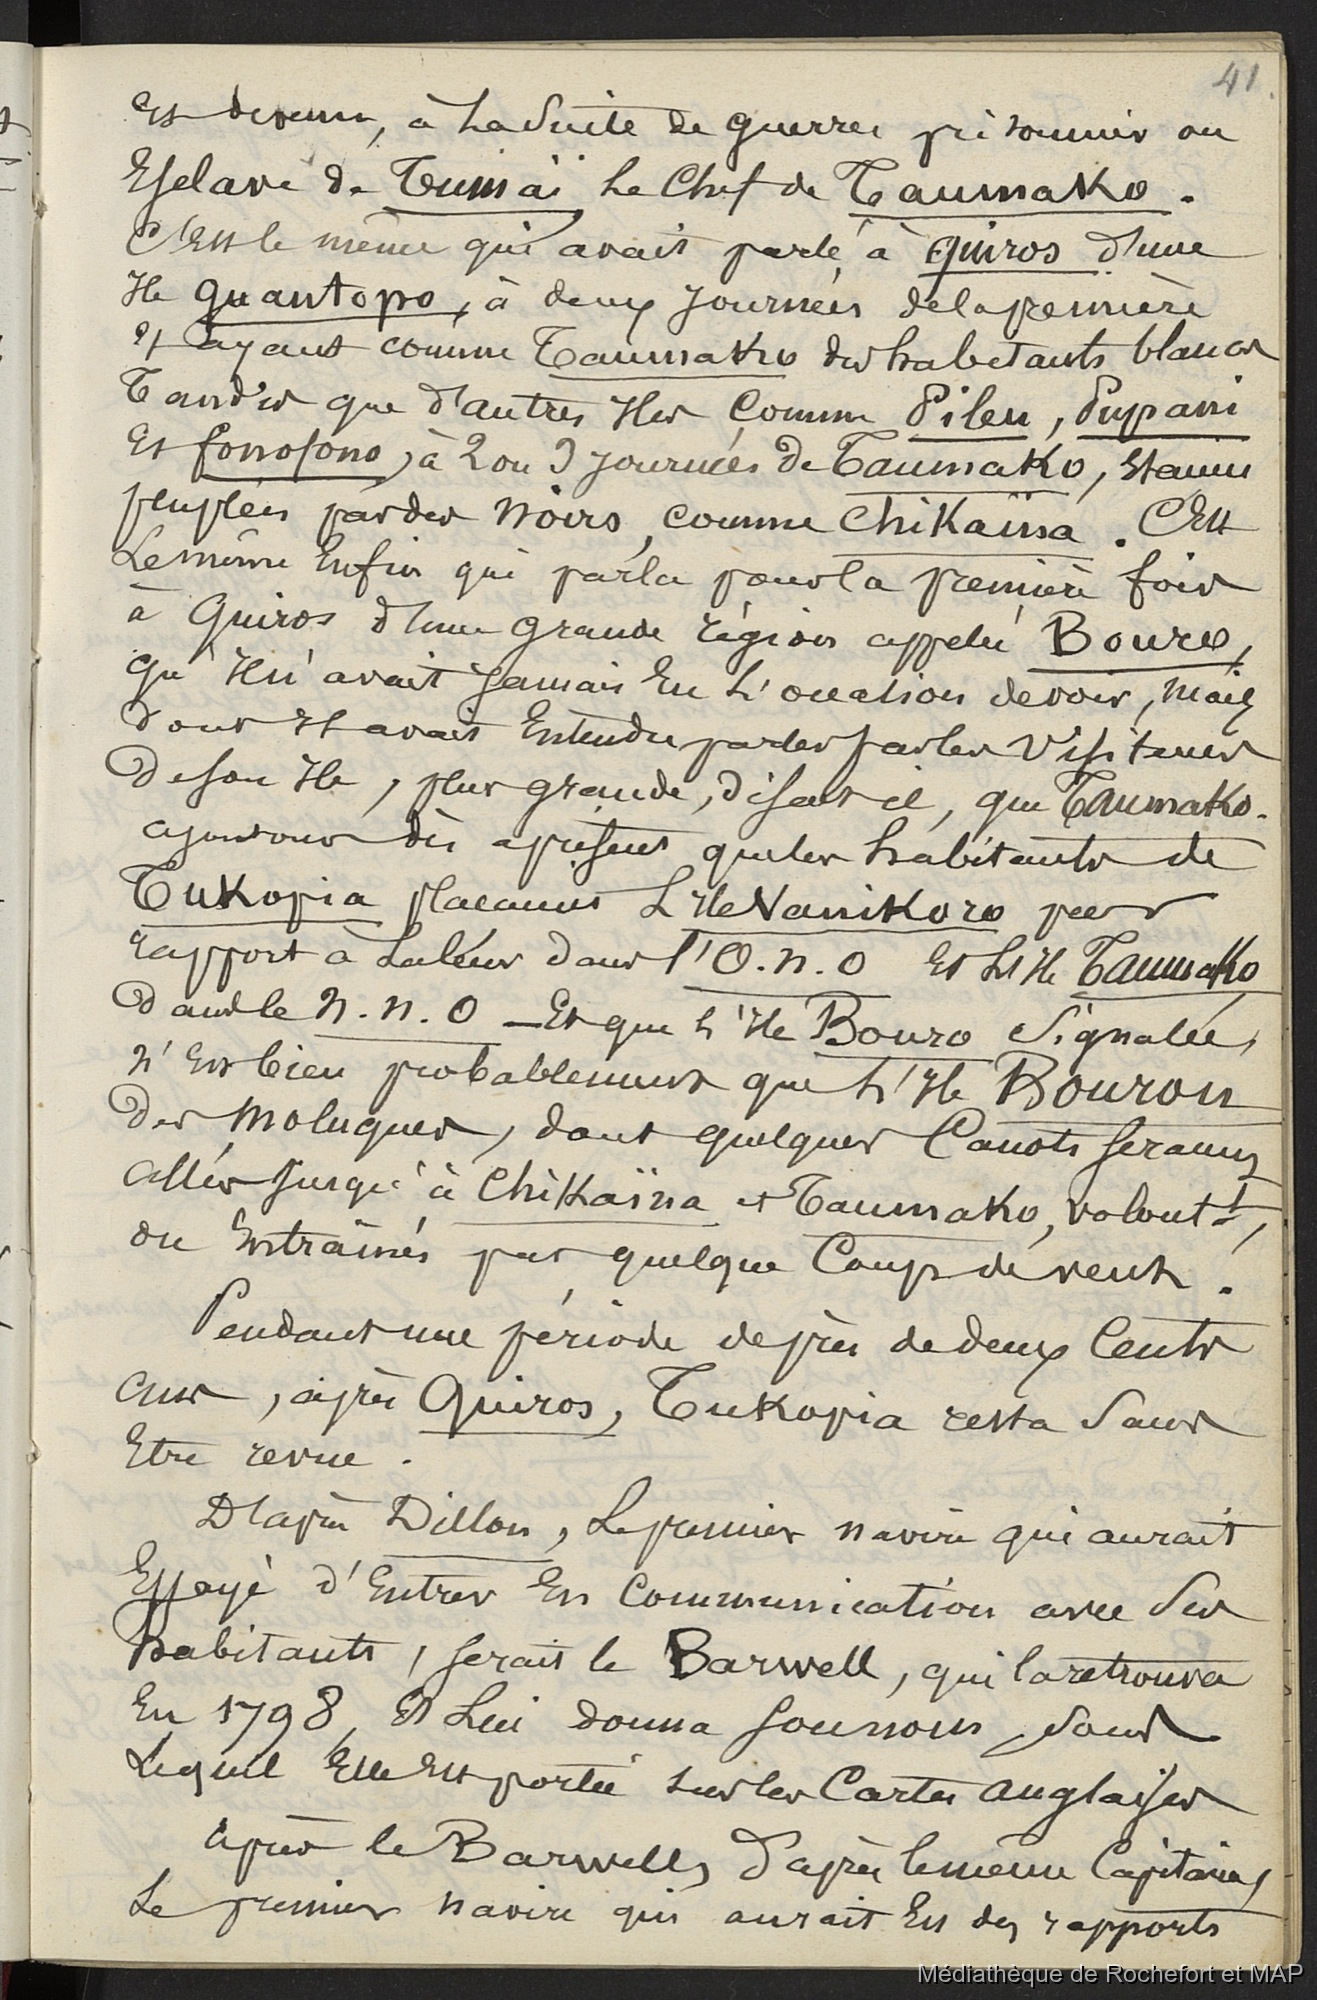 41.
Est devenu, à La Suite de guerres prisonnier ou
Esclave de Tumaï Le Chef de Taumako.
C'Est le même qui avait parlé à Quiros d'une
Ile Guantopo, à deux journées de la première
Et ayant comme Taumako des habitants blancs
Tandis que d'autres Iles Comme Pileu, Pupani
Et fonofono, à 2 ou 3 journées de Taumako, étaient
peuplées par des Noirs, comme Chikaïna. C'Est
Le même Enfin qui parla pour la première fois
à Quiros d'une grande région appelée Bouro,
qu'Il n'avait Jamais Eu L'occasion de voir, mais
dont Il avait Entendu parler par les Visiteurs
De son Ile, plus grande, disait il, que Taumako.
ajoutons dès àprésent que les habitants de
Tukopia placaient L'Ile Vanikoro par
rapport à La leur dans l'O.N.O Et L'Ile Taumako
Dans le N.N.O – Et que L'Ile Bouro Signalée,
n'Est bien probablement que L'Ile Bourou
Des Moluques, dont quelques Canots seraient
allés jusqu'à Chikaïna et Taumako, volontt,
ou Entraînés par quelque Coup de vent.
Pendant une période de près de deux Cents
ans, après Quiros, Tukopia resta Sans
Etre revue.
D'après Dillon, Le premier navire qui aurait
Essayé d'Entrer En Communication avec Ses
habitants, serait le Barwell, qui la retrouva
En 1798, Et Lui donna son nom, Sous
Lequel Elle Est portée sur les Cartes anglaises
après le Barwell, d'après le même Capitaine,
Le premier navire qui aurait Eu des rapports
Médiathèque de Rochefort et MAP